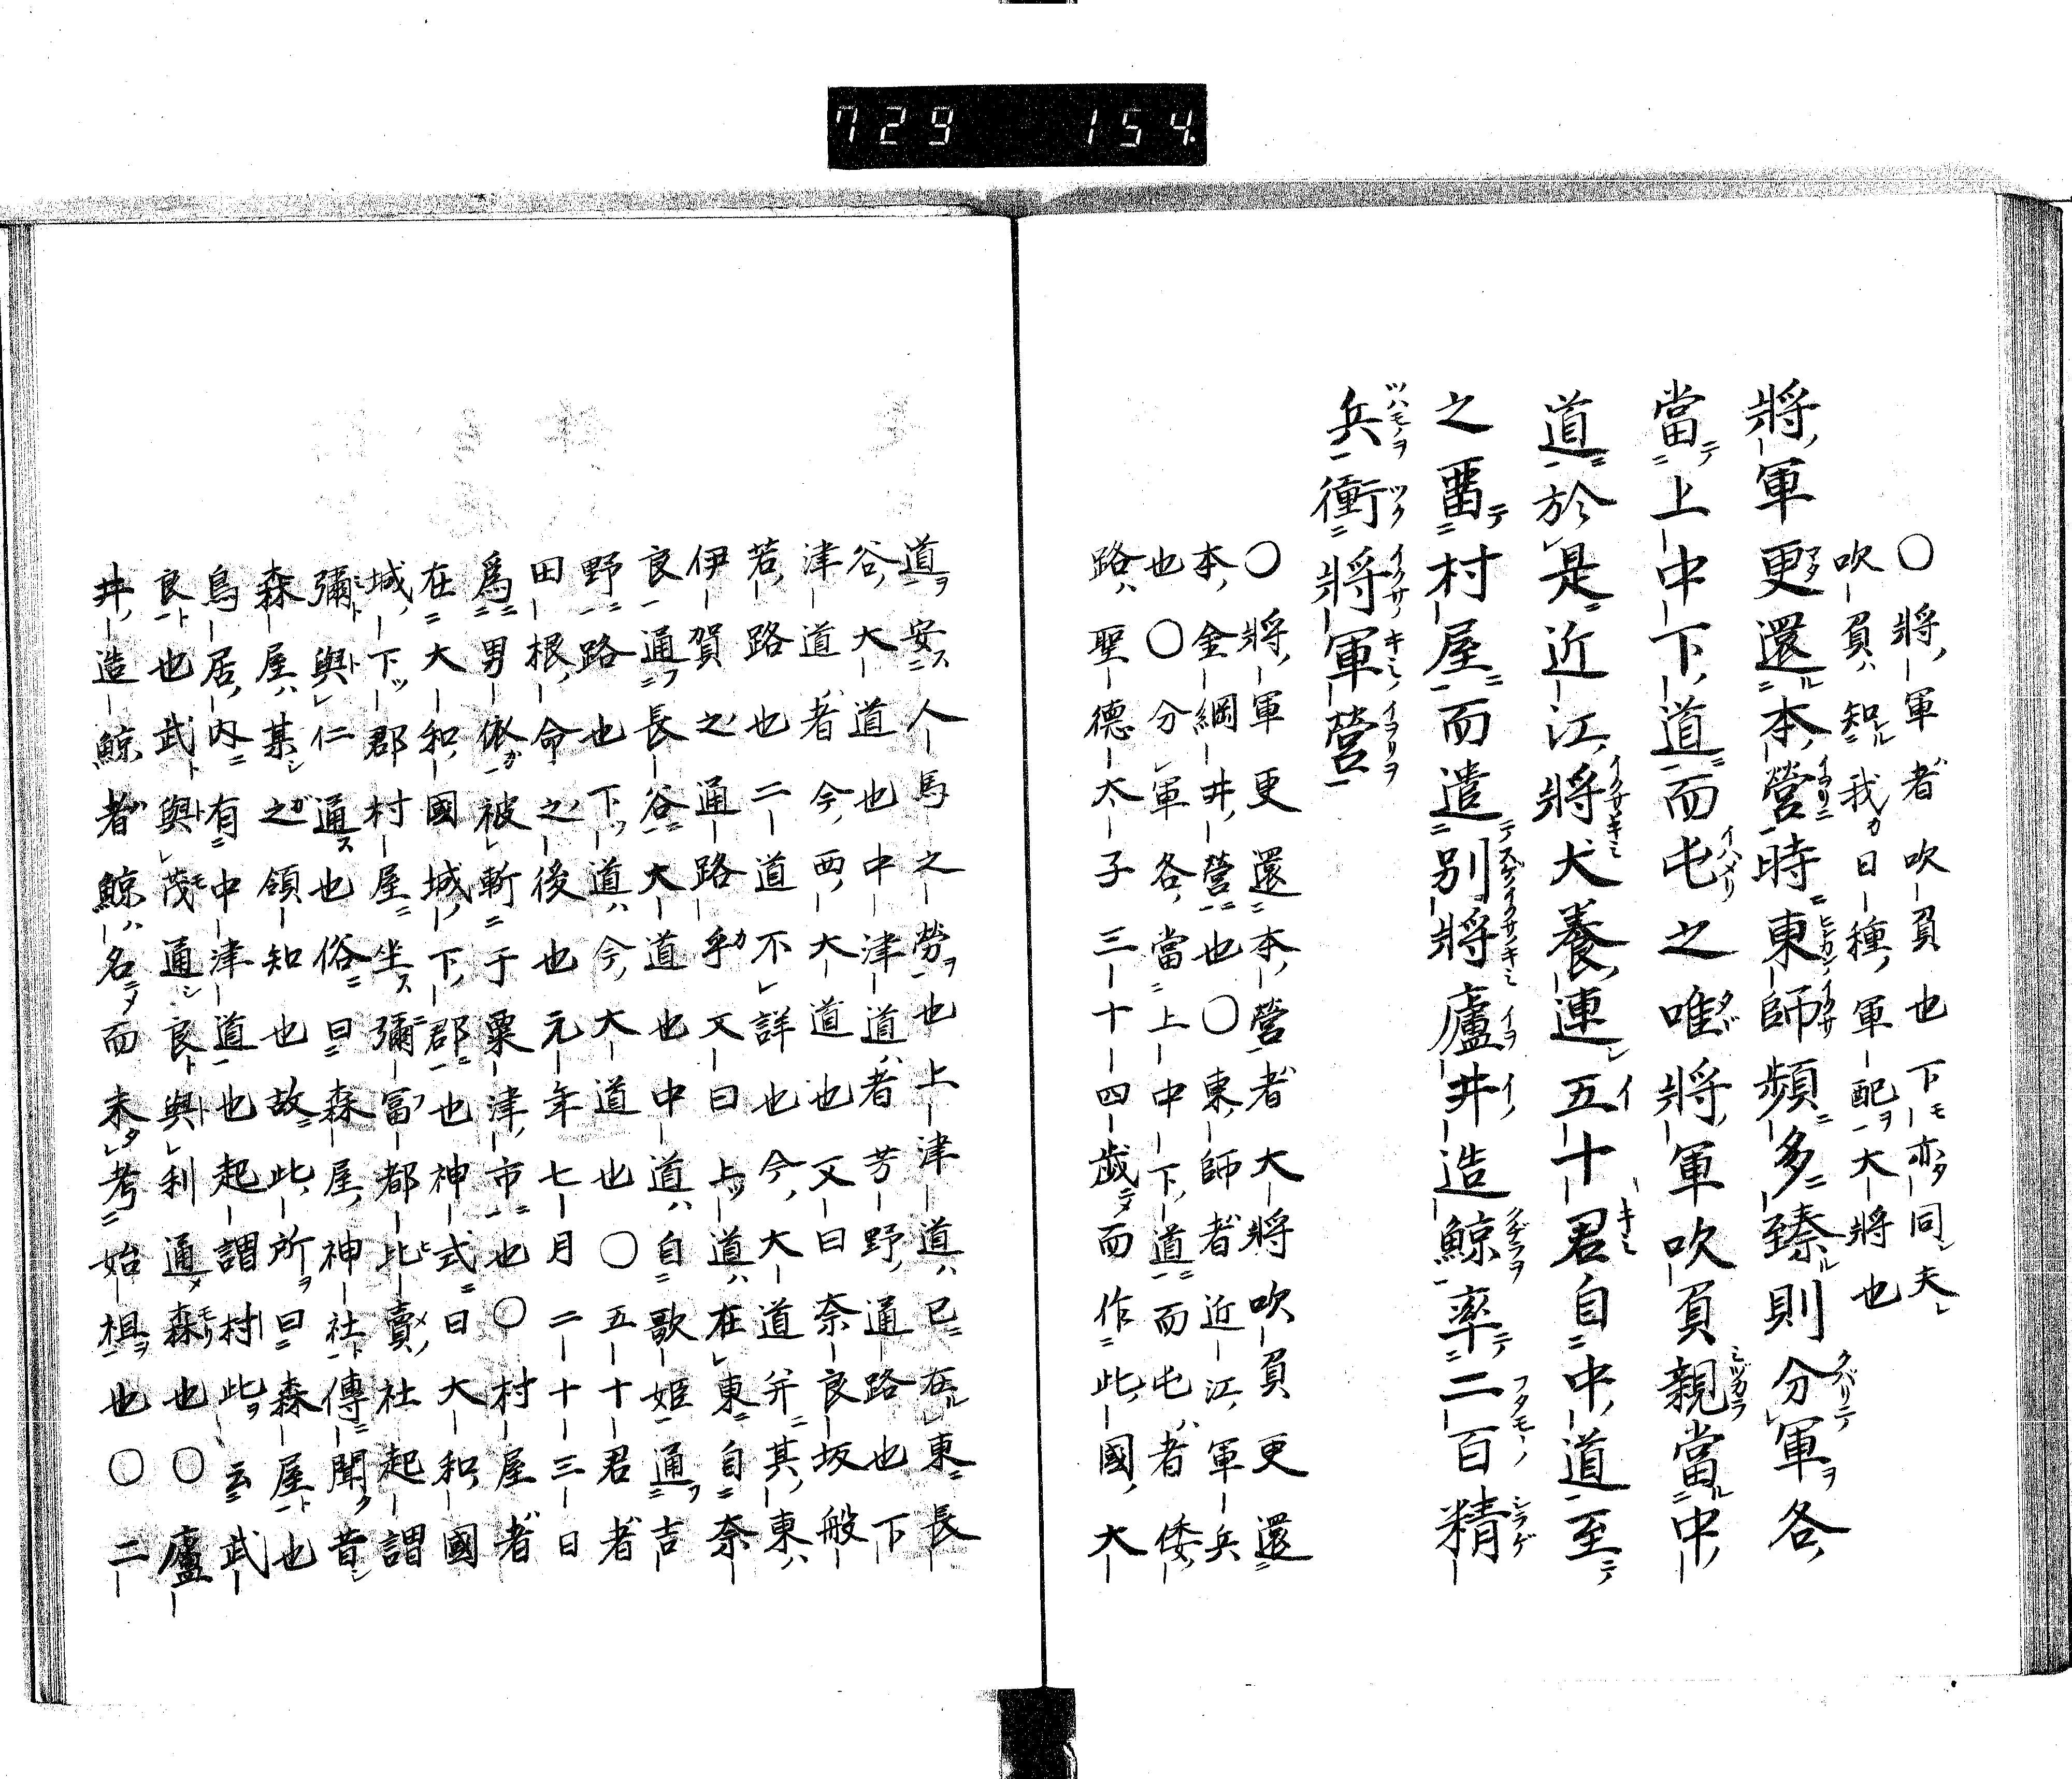 729 154.
○將軍者吹負也下亦同夫
吹負知我日種軍配大將也
將軍更還本營時東師頻多臻則分軍各
當上中下道而屯之唯將軍吹負親當中
道於是近江將犬養連五十君自中道至
之畱村屋而遣別將廬井造鯨率二百精
兵衝將軍營
○將軍更還本營者大將吹負更還
本金綱井營也○東師者近江軍兵
也○分軍各當上中下道而屯者倭
路聖德太子三十四歲而作此國大
道安人馬之勞也上津道已在東長
谷大道也中津道者芳野通路也下
津道者今西大道也又曰奈良坂般
若路也二道不詳也今大道并其東
伊賀之通路乎又曰上道在東自奈
良通長谷大道也中道自歌姬通吉
野路也下道今大道也○五十君者
田根命之後也元年七月二十三日
爲男依被斬于粟津市也○村屋者
在大和國城下郡也神式曰大和國
城下郡村屋坐彌冨都比賣社起謂
彌與仁通也俗曰森屋神社傳聞昔
森屋某之領知也故此所曰森屋也
鳥居內有中津道也起謂村此云武
良也武與茂通良與利通森也○廬
井造鯨者鯨名而未考始祖也○二